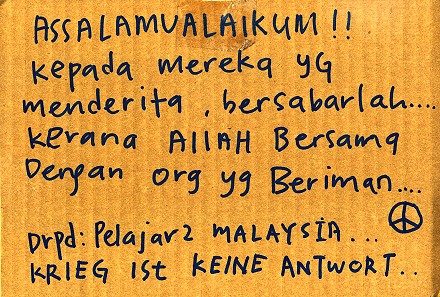 ASSALAMUALAIKUM !!
kepada mereka yg
menderita , bersabarlah....
kerana Allah Bersama
Dengan org yg Beriman....
Drpd: Pelajar2 MALAYSIA...
KRIEG ist KEINE ANTWORT..